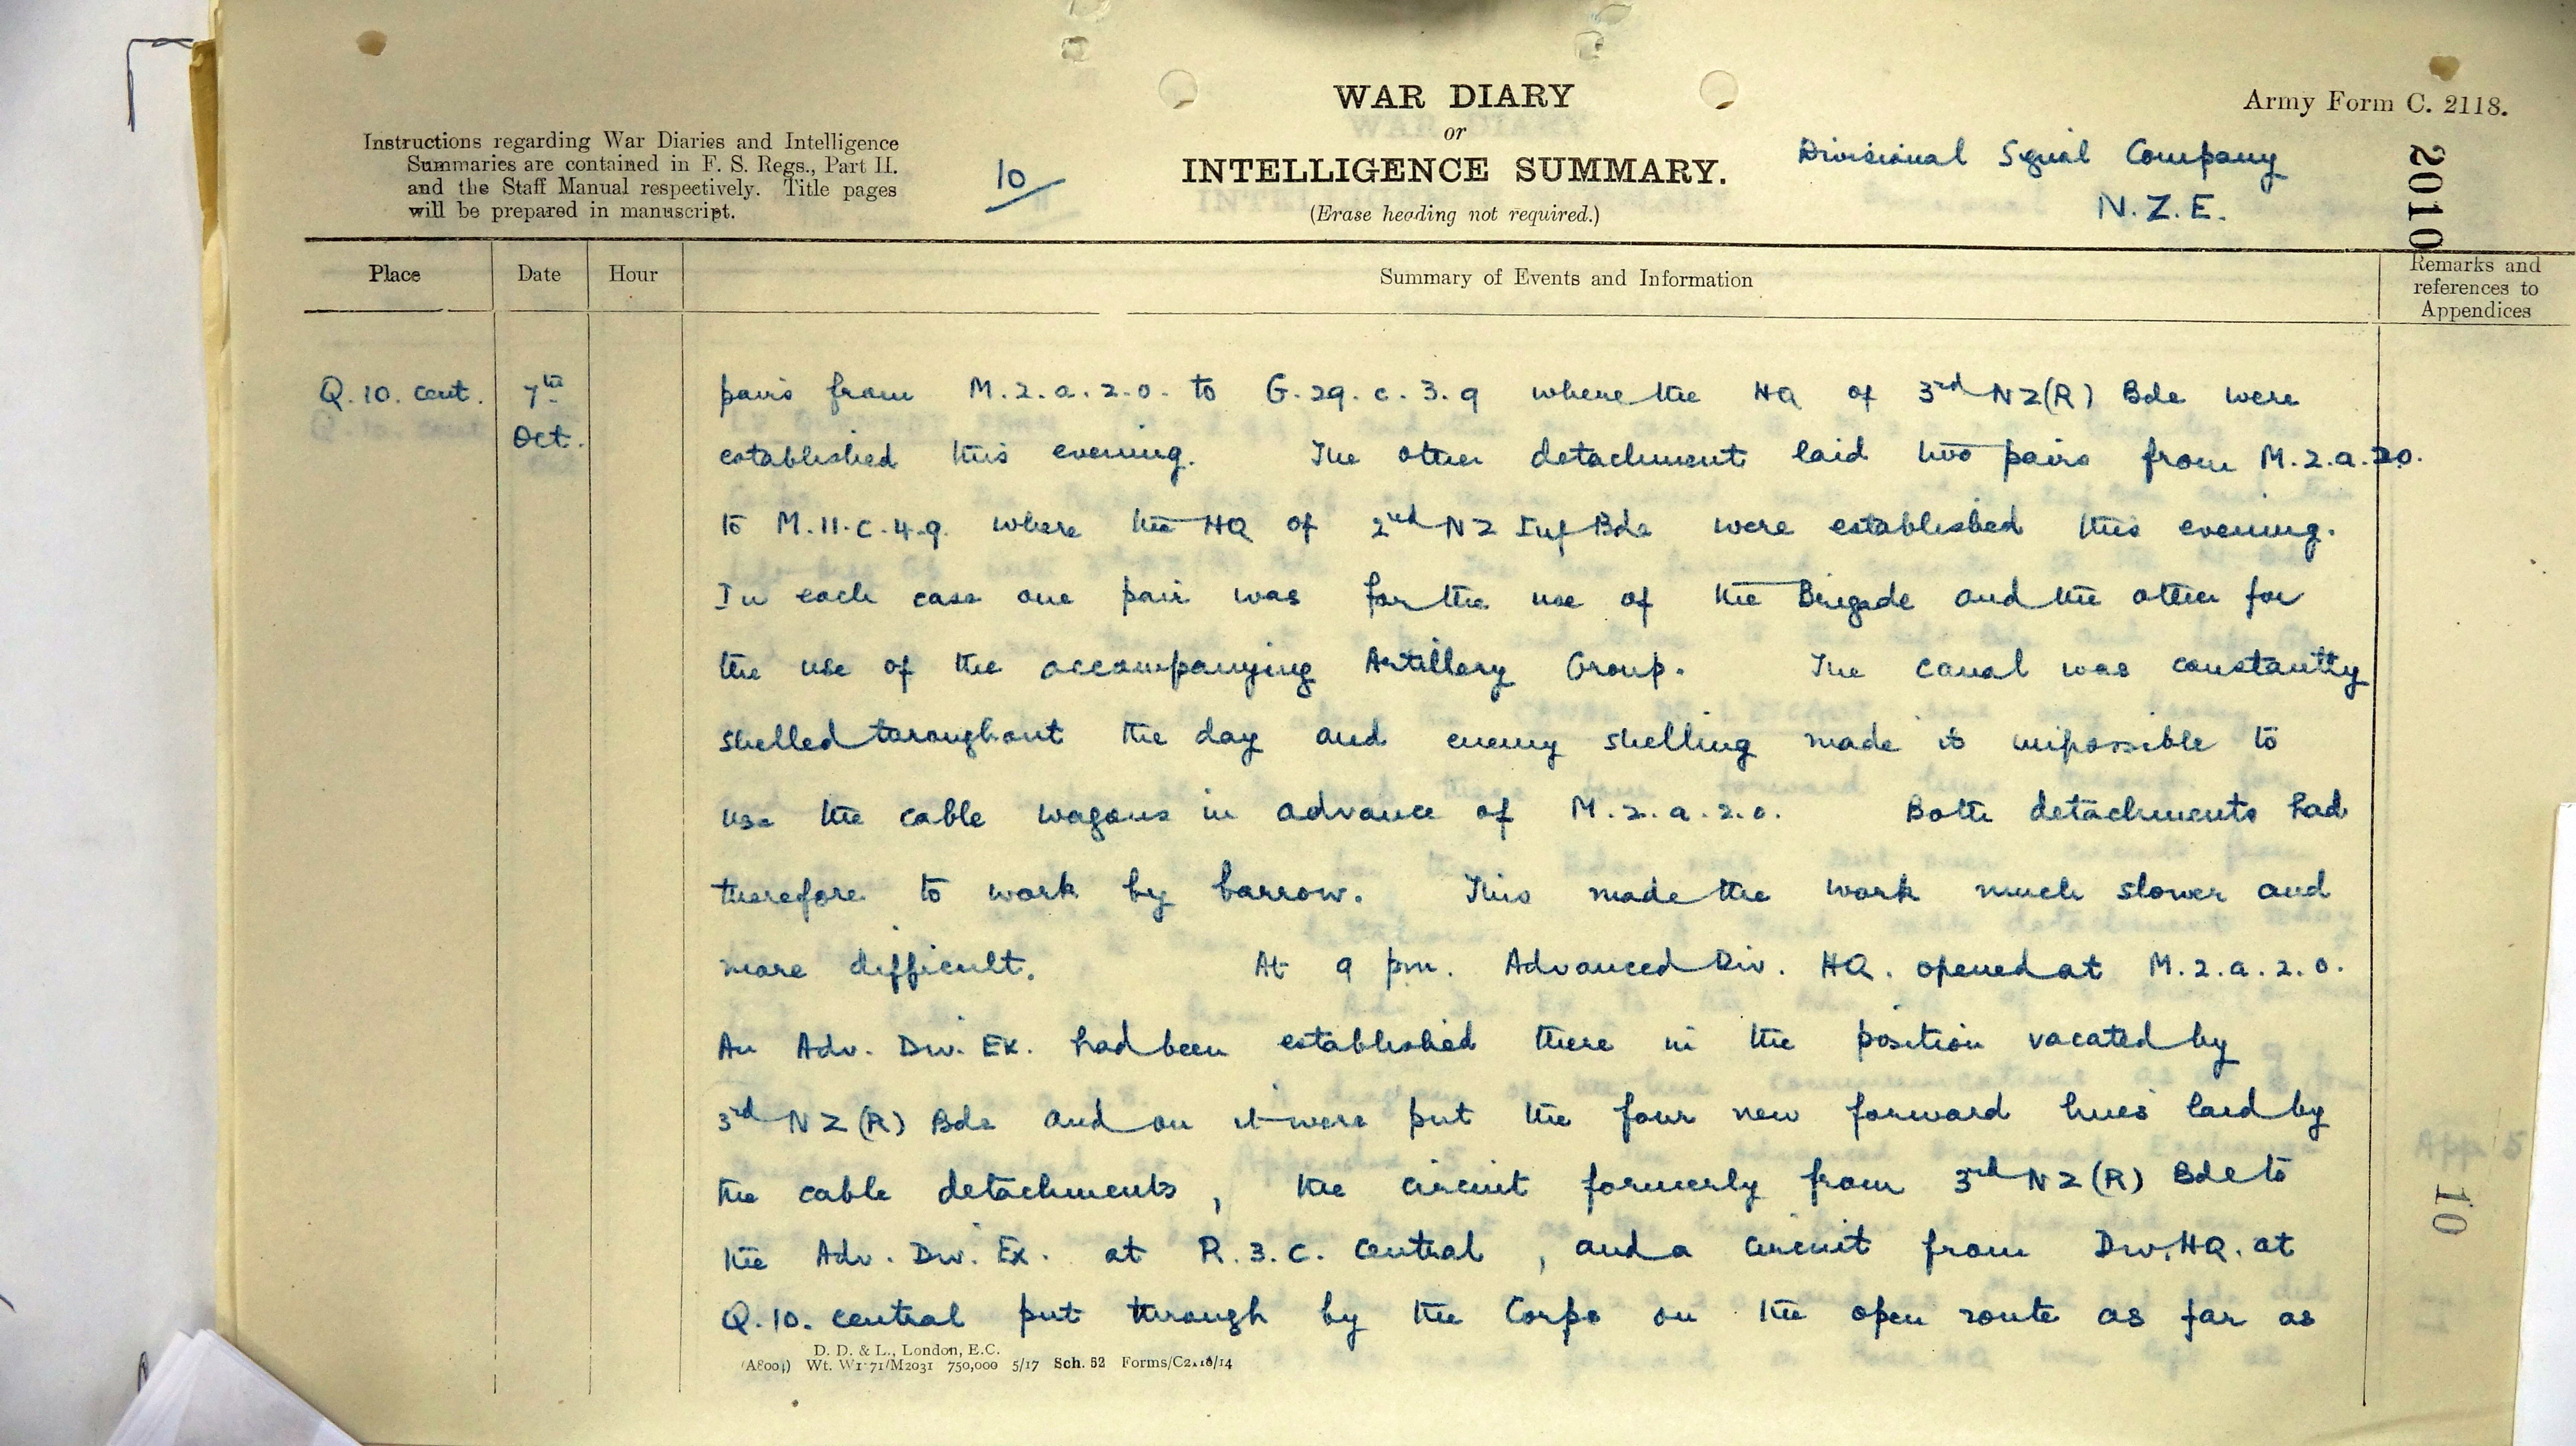 WAR DIARY
or
INTELLIGENCE SUMMARY.
(Erase heading not required.)
Army Form C. 2118.
Instructions regarding War Diaries and Intelligence
Summaries are contained in F. S. Regs., Part II.
and the Staff Manual respectively. Title pages
will be prepared in manuscript.
10
Divisional Signal Company
N.Z.E.
2010
Place
Date
Hour
Summary of Events and Information
Remarks and
references to
Appendices
Q.10. cent.
7th
Oct.
pairs from M.2.a.2.0. to G.29.c.3.9 where the HQ of 3rd NZ(R) Bde were
established this evening. The other detachment laid two pairs from M.2.a.20.
to M.11.c.4.9. where the HQ of 2nd NZ Inf Bde were established this evening.
In each case one pair was for the use of the Brigade and the other for
the use of the accompanying Artillery Group. The canal was constantly
shelled throughout the day and enemy shelling made it impossible to
use the cable wagons in advance of M.2.a.2.0. Both detachments had
therefore to work by barrow. This made the work much slower and
more difficult. At 9 pm. Advanced Div. HQ. opened at M.2.a.2.0.
An Adv. Div. Ex. had been established there in the position vacated by
3rd NZ(R) Bde and on it were put the four new forward lines laid by
the cable detachments, the circuit formerly from 3rd NZ(R) Bde to
the Adv. Div. Ex. at R.3.c. central, and a circuit from Div. HQ. at
Q.10. central put through by the Corps on the open route as far as
App 5
10
D. D. & L., London, E.C.
Wt. W1771/M2031 750,000 5/17 Sch. 52 Forms/C2118/14